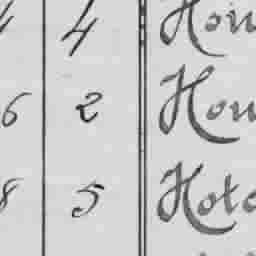 4 4 Hou
6 2 Hou
8 5 Hote